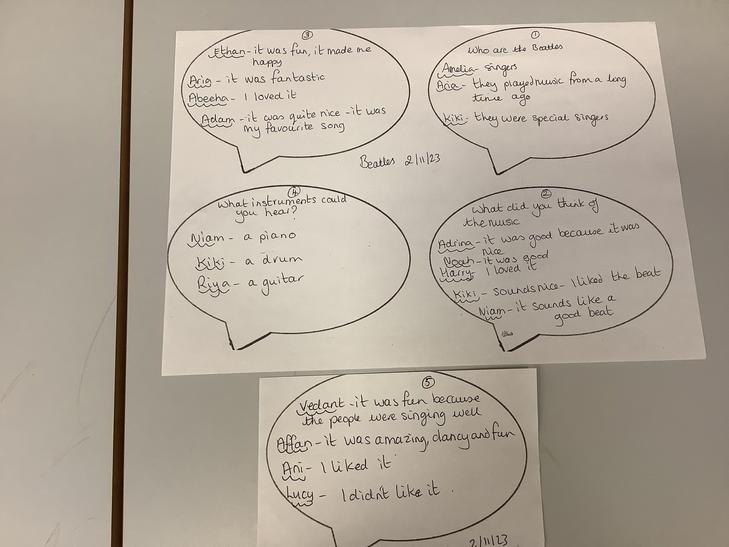 ③
Ethan - it was fun, it made me
happy
Aria - it was fantastic
Abeeha - I loved it
Adam - it was quite nice - it was
my favourite song
①
Who are the Beatles
Amelia - singers
Aria - they played music from a long
time ago
Kiki - they were special singers
Beatles 2/11/23
④
What instruments could
you hear?
Niam - a piano
Kiki - a drum
Riya - a guitar
②
What did you think of
the music
Adrina - it was good because it was
nice
Noah - it was good
Harry - I loved it
Kiki - sounds nice - I liked the beat
Niam - it sounds like a
good beat
⑤
Vedant - it was fun because
the people were singing well
Affan - it was amazing, dancy and fun
Ani - I liked it
Lucy - I didn't like it.
2/11/23